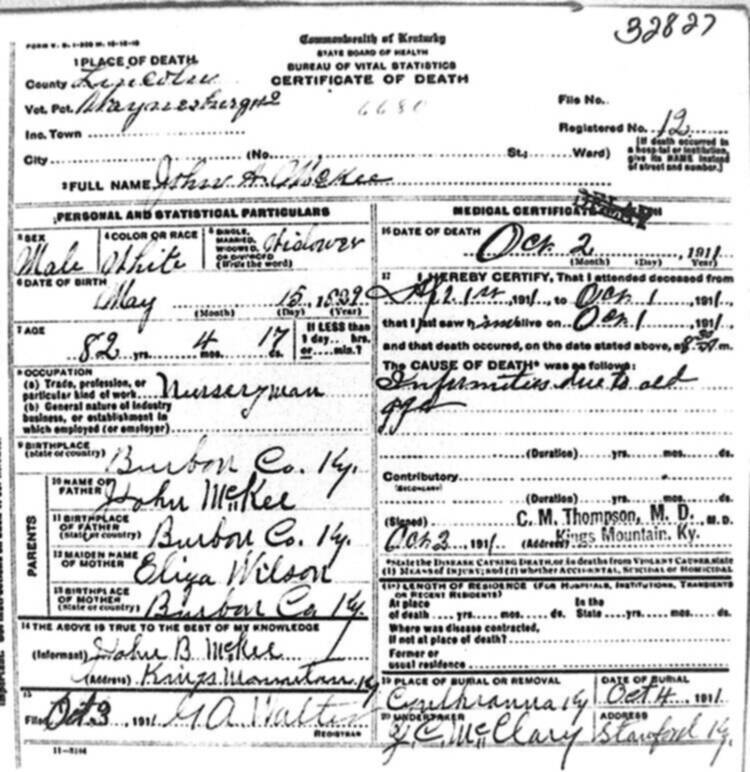 32827
FORM V. S. 1-
Commonwealth of Kentucky
STATE BOARD OF HEALTH
BUREAU OF VITAL STATISTICS
CERTIFICATE OF DEATH
1 PLACE OF DEATH
County Lincoln
Vot. Pct. Waynesburg #2
6680
File No.
Inc. Town
Registered No. 12
City (No. St.; Ward)
[If death occurred in a hospital or institution, give its NAME instead of street and number.]
2 FULL NAME John A. McKee
PERSONAL AND STATISTICAL PARTICULARS
3 SEX
Male
4 COLOR OR RACE
White
5 SINGLE, MARRIED, WIDOWED OR DIVORCED
(Write the word)
Widower
6 DATE OF BIRTH
May 15, 1829
(Month) (Day) (Year)
7 AGE
82 yrs. 4 mos. 17 ds.
If LESS than 1 day.. hrs. or.... min.?
8 OCCUPATION
(a) Trade, profession, or particular kind of work Nurseryman
(b) General nature of industry business, or establishment in which employed (or employer)
9 BIRTHPLACE
(state or country)
Burbon Co. Ky.
PARENTS
10 NAME OF FATHER
John McKee
11 BIRTHPLACE OF FATHER
(State or country)
Burbon Co. Ky.
12 MAIDEN NAME OF MOTHER
Eliza Wilson
13 BIRTHPLACE OF MOTHER
(State or country)
Burbon Co Ky.
14 THE ABOVE IS TRUE TO THE BEST OF MY KNOWLEDGE
(Informant) John B. McKee
(Address) Kings Mountain Ky
15
Filed Oct 3, 1911 G A Walter
REGISTRAR
11-
MEDICAL CERTIFICATE
16 DATE OF DEATH
Oct. 2, 1911
(Month) (Day) (Year)
17 I HEREBY CERTIFY, That I attended deceased from
1911, to Oct 1 1911
that I last saw him alive on Oct 1 1911
and that death occured, on the date stated above, at m.
The CAUSE OF DEATH* was as follows:
Infirmities due to old
age
(Duration) yrs. mos. ds.
Contributory
(SECONDARY)
(Duration) yrs. mos. ds.
(Signed) C. M. Thompson, M. D. M.D.
Oct 2, 1911 (Address) Kings Mountain, Ky.
*State the DISEASE CAUSING DEATH, or in deaths from VIOLENT CAUSES, state (1) MEANS OF INJURY; and (2) whether ACCIDENTAL, SUICIDAL OR HOMICIDAL
18 LENGTH OF RESIDENCE (FOR HOSPITALS, INSTITUTIONS, TRANSIENTS OR RECENT RESIDENTS)
At place of death yrs. mos. ds.
In the State yrs. mos. ds.
Where was disease contracted, if not at place of death?
Former or usual residence
19 PLACE OF BURIAL OR REMOVAL
Cynthianna Ky
DATE OF BURIAL
Oct 4, 1911
20 UNDERTAKER
J. C. McClary
ADDRESS
Stanford Ky.